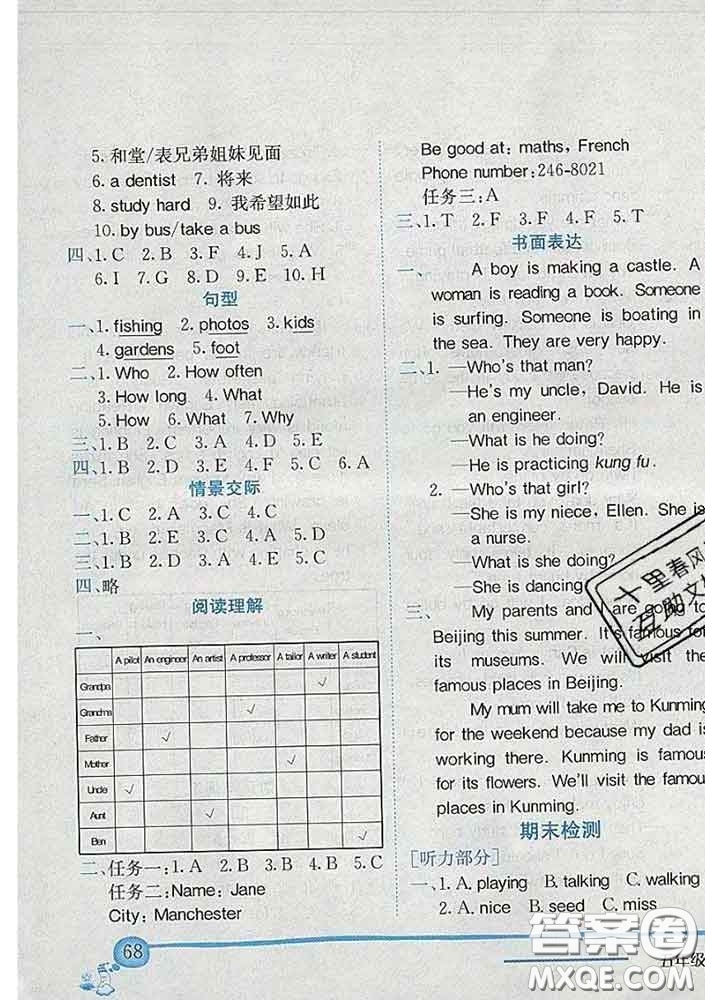 5. 和堂/表兄弟姐妹见面
6. a dentist 7. 将来
8. study hard 9. 我希望如此
10. by bus/take a bus
四、1. C 2. B 3. F 4. J 5. A
6. I 7. G 8. D 9. E 10. H
句型
一、1. fishing 2. photos 3. kids
4. gardens 5. foot
二、1. Who 2. How often
3. How long 4. What
5. How 6. What 7. Why
三、1. B 2. C 3. A 4. D 5. E
四、1. B 2. D 3. E 4. F 5. C 6. A
情景交际
一、1. C 2. A 3. C 4. C
二、1. B 2. E 3. C 4. A 5. D
三、1. D 2. B 3. A 4. E 5. C
四、略
阅读理解
一、
A pilot An engineer An artist A professor A tailor A writer A student
Grandpa √
Grandma √
Father √
Mother √
Uncle √
Aunt √
Ben √
二、任务一：1. A 2. B 3. B 4. B 5. C
任务二：Name: Jane
City: Manchester
68
Be good at: maths, French
Phone number: 246-8021
任务三：A
三、1. T 2. F 3. F 4. F 5. T
书面表达
一、 A boy is making a castle. A
woman is reading a book. Someone
is surfing. Someone is boating in
the sea. They are very happy.
二、1. —Who's that man?
—He's my uncle, David. He is
an engineer.
—What is he doing?
—He is practicing kung fu.
2. —Who's that girl?
—She is my niece, Ellen. She is
a nurse.
—What is she doing?
—She is dancing.
三、 My parents and I are going to
Beijing this summer. It's famous for
its museums. We will visit the
famous places in Beijing.
My mum will take me to Kunming
for the weekend because my dad is
working there. Kunming is famous
for its flowers. We'll visit the famous
places in Kunming.
期末检测
[听力部分]
一、1. A. playing B. talking C. walking
2. A. nice B. seed C. miss
五年级
十里春风
互助文
答案圈
MXQE.COM